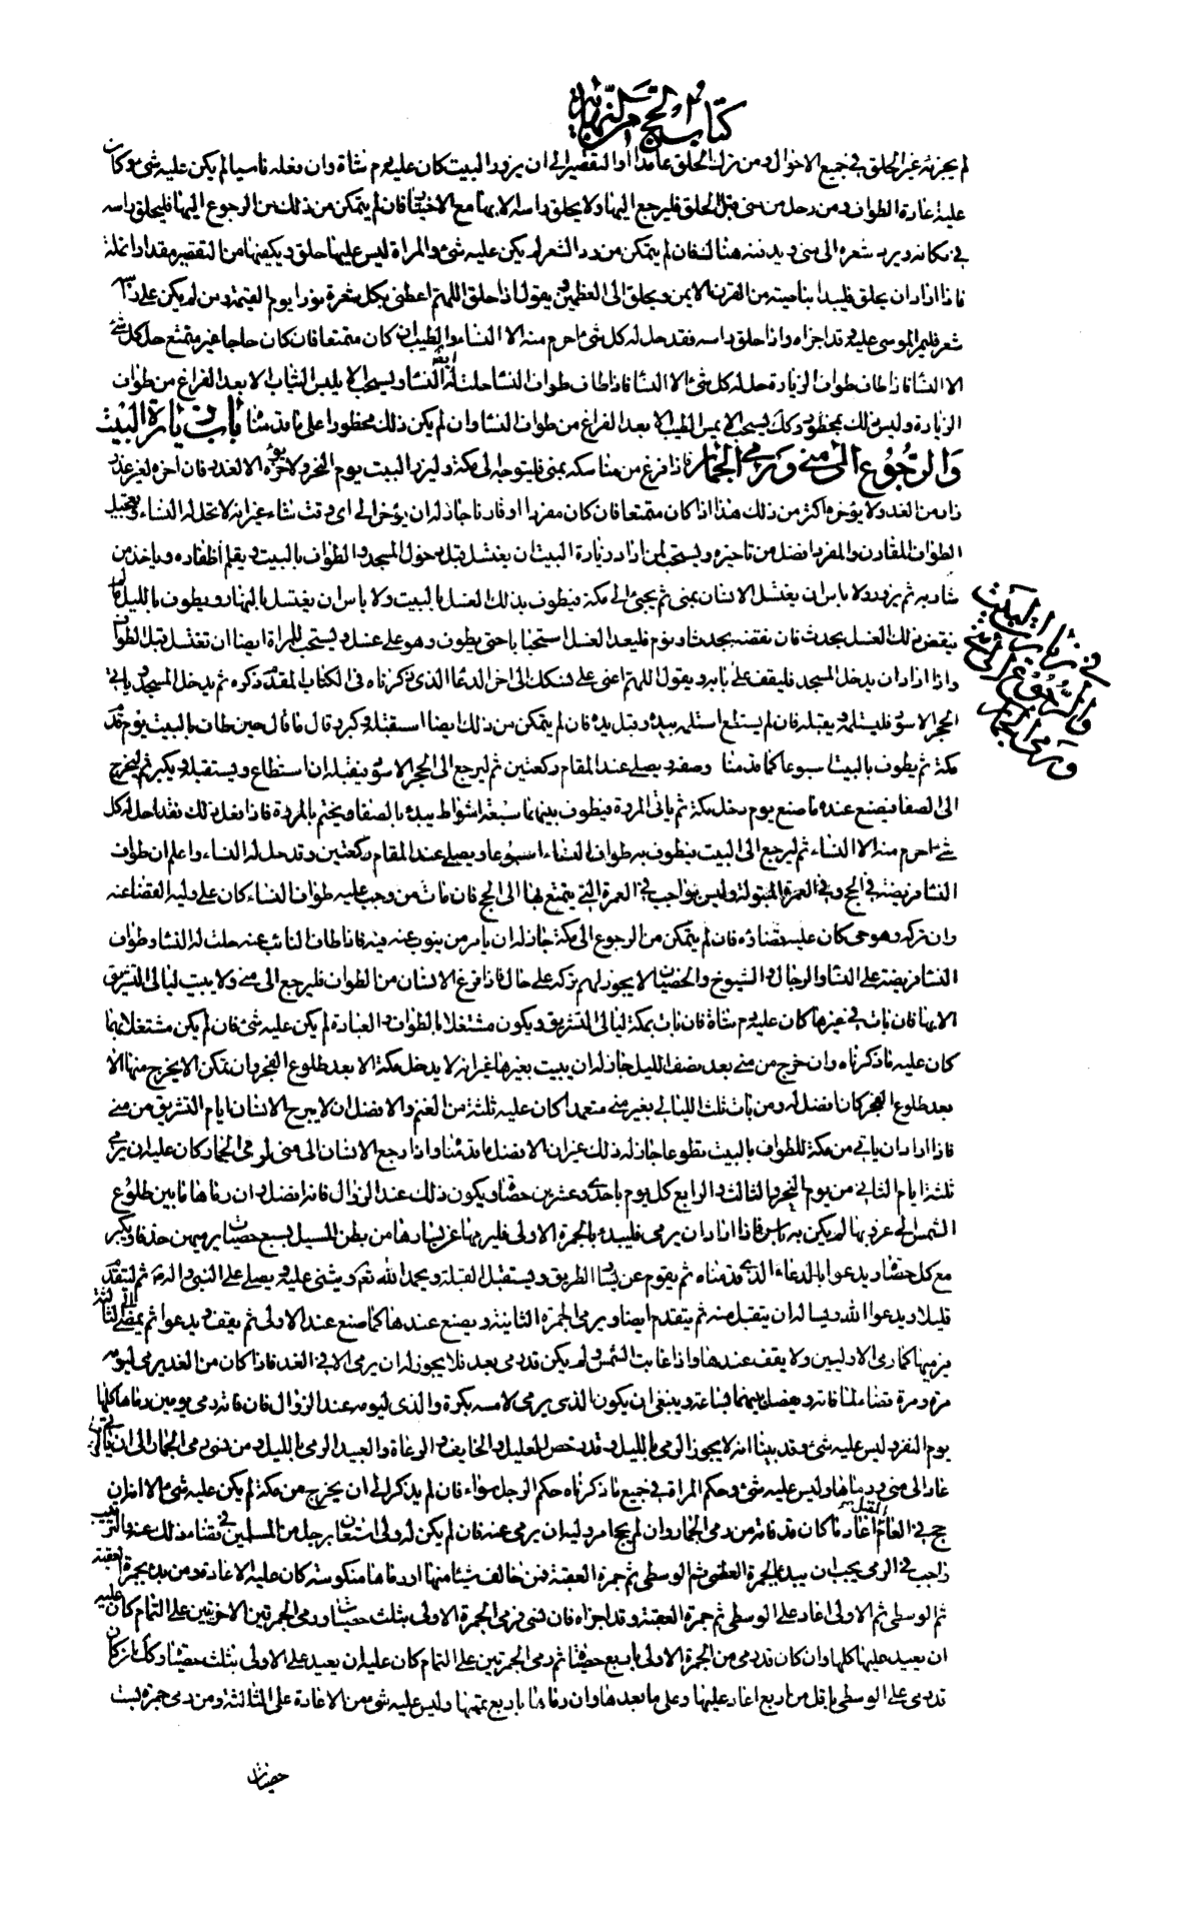 كتاب الحج من النهاية
لم يجزئه غير الحلق في جميع الاحوال ومن ترك الحلق عامدا او التقصير الى ان يزور البيت كان عليه دم شاة وان فعله ناسيا لم يكن عليه شيء وكان
عليه اعادة الطواف ومن رحل من منى قبل الحلق فليرجع اليها ولا يحلق راسه الا بها مع الاختيار فان لم يتمكن من ذلك من الرجوع اليها فليحلق راسه
في مكانه ويرد شعره الى منى ويدفنه هناك فان لم يتمكن من رد الشعر لم يكن عليه شئ والمراة ليس عليها حلق ويكفيها من التقصير مقدار انملة
فاذا اراد ان يحلق فليبدا بناصيته من القرن الايمن ويحلق الى العظمين ويقول اذا حلق اللهم اعطني بكل شعرة نورا يوم القيمة ومن لم يكن على راسه
شعر فليمر الموسى عليه وقد اجزاه واذا حلق راسه فقد حل له كل شئ احرم منه الا النساء والطيب ان كان متمتعا فان كان حاجا غير متمتع حل كل شئ
الا النساء فاذا طاف طواف الزيارة حل له كل شئ الا النساء فاذا طاف طواف النساء حلت له ايضا النساء ويستحب الا يلبس الثياب الا بعد الفراغ من طواف
الزيارة وليس ذلك بمحظور وكك يستحب الا يمس الطيب الا بعد الفراغ من طواف النساء وان لم يكن ذلك محظورا على ما قدمنا باب زيارة البيت
والرجوع الى منى ورمي الجمار فاذا فرغ من مناسكه بمنى فليتوجه الى مكة وليزر البيت يوم النحر ولا يؤخره الا لعذر فان اخره لعذر
زار من الغد ولا يؤخره اكثر من ذلك هذا اذا كان متمتعا فان كان مفردا او قارنا جاز له ان يؤخر الى اى وقت شاء غير انه لا تحل له النساء وتعجيل
الطواف للقارن والمفرد افضل من تاخيره ويستحب لمن اراد زيارة البيت ان يغتسل قبل دخول المسجد والطواف بالبيت ويقلم اظفاره وياخذ من
شاربه ثم يزور ولا باس ان يغتسل الانسان بمنى ثم يجئ الى مكة فيطوف بذلك الغسل بالبيت ولا باس ان يغتسل بالنهار ويطوف بالليل ما لم
ينقض ذلك الغسل بحدث فان نقضه بحدث او نوم فليعد الغسل استحبابا حتى يطوف وهو على غسل ويستحب للمراة ايضا ان تغتسل قبل الطواف
واذا اراد ان يدخل المسجد فليقف على بابه ويقول اللهم اعني على نسكك الى اخر الدعاء الذي ذكرناه في الكتاب المقدم ذكره ثم يدخل المسجد وياتي
الحجر الاسود فليستلمه ويقبله فان لم يستطع استلمه بيده وقبل يده فان لم يتمكن من ذلك ايضا استقبله وكبر وقال ما قال حين طاف بالبيت يوم قدم
مكة ثم يطوف بالبيت اسبوعا كما قدمنا وصفه ويصلي عند المقام ركعتين ثم ليرجع الى الحجر الاسود فيقبله ان استطاع ويستقبله ويكبر ثم ليخرج
الى الصفا فيصنع عنده ما صنع يوم دخل مكة ثم ياتي المروة فيطوف بينهما سبعة اشواط يبدء بالصفا ويختم بالمروة فاذا فعل ذلك فقد احل له كل
شئ احرم منه الا النساء ثم ليرجع الى البيت فيطوف به طواف النساء اسبوعا ويصلي عند المقام ركعتين وقد حل له النساء واعلم ان طواف
النساء فريضة في الحج وفي العمرة المبتولة وليس بواجب في العمرة التي يتمتع بها الى الحج فان مات من وجب عليه طواف النساء كان على وليه القضاء عنه
وان تركه وهو حى كان عليه قضاؤه فان لم يتمكن من الرجوع الى مكة جاز له ان يامر من ينوب عنه فيه فاذا طاف النائب عنه حلت له النساء وطواف
النساء فريضة على النساء والرجال والشيوخ والخصيان لا يجوز لهم تركه على حال فاذا فرغ الانسان من الطواف فليرجع الى منى ولا يبيت ليالي التشريق
الا بها فان بات في غيرها كان عليه دم شاة فان بات بمكة ليالي التشريق ويكون مشتغلا بالطواف والعبادة لم يكن عليه شئ فان لم يكن مشتغلا بهما
كان عليه ما ذكرناه وان خرج من منى بعد نصف الليل جاز له ان يبيت بغيرها غير انه لا يدخل مكة الا بعد طلوع الفجر وان تمكن الا يخرج منها الا
بعد طلوع الفجر كان افضل له ومن بات ثلث الليالي بغير منى متعمدا كان عليه ثلثة من الغنم والافضل ان لا يبرح الانسان ايام التشريق من منى
فاذا اراد ان ياتي من مكة للطواف بالبيت تطوعا جاز له ذلك غير ان الافضل ما قدمناه واذا رجع الانسان الى منى لرمي الجمار كان عليه ان يرمي
ثلثة ايام الثاني من يوم النحر والثالث والرابع كل يوم باحدى وعشرين حصاة ويكون ذلك عند الزوال فانه افضل وان رماها ما بين طلوع
الشمس الى غروبها لم يكن به باس فاذا اراد ان يرمي فليبدء بالجمرة الاولى فليرمها عن يسارها من بطن المسيل بسبع حصيات يرميهن خذفا ويكبر
مع كل حصاة ويدعوا بالدعاء الذي قدمناه ثم يقوم عن يسار الطريق ويستقبل القبلة ويحمد الله تعم ويثني عليه ويصلي على النبي واله ثم ليتقدم
قليلا ويدعوا الله ويساله ان يتقبل منه ثم يتقدم ايضا ويرمي الجمرة الثانية ويصنع عندها كما صنع عند الاولى ثم يقف ويدعوا ثم يمضي الى الثالثة
فيرميها كما رمى الاوليين ولا يقف عندها واذا غابت الشمس ولم يكن قد رمى بعد فلا يجوز له ان يرمى الا في الغد فاذا كان من الغد يرمى ليومه
مرة ومرة قضاء لما فاته ويفصل بينهما بساعة وينبغي ان يكون الذي يرمى لامسه بكرة والذي ليومه عند الزوال فان فاته رمى يومين رماها كلها
يوم النفر وليس عليه شئ وقد بينا انه لا يجوز الرمي بالليل وقد رخص للعليل والخايف والرعاة والعبيد الرمي بالليل ومن نسى رمى الجمار الى ان ياتي مكة
عاد الى منى ورماها وليس عليه شئ وحكم المراة في جميع ما ذكرناه حكم الرجل سواء فان لم يذكر الى ان يخرج من مكة لم يكن عليه شئ الا انه ان
حج في العام القابل اعاد ما كان قد فاته من رمى الجمار وان لم يحج امر وليه ان يرمى عنه فان لم يكن له ولي استعان برجل من المسلمين في قضاء ذلك عنه والترتيب
واجب في الرمي يجب ان يبدء بالجمرة العظمى ثم الوسطى ثم جمرة العقبة فمن خالف شيئا منها او رماها منكوسة كان عليه الاعادة ومن بدء بجمرة العقبة
ثم الوسطى ثم الاولى اعاد على الوسطى ثم جمرة العقبة وقد اجزاه فان نسى فرمى الجمرة الاولى بثلث حصيات ورمى الجمرتين الاخرتين على التمام كان عليه
ان يعيد عليها كلها وان كان قد رمى من الجمرة الاولى باربع حصيات ثم رمى الجمرتين على التمام كان عليه ان يعيد على الاولى بثلث حصيات وكك ان كان
قد رمى على الوسطى باقل من اربع اعاد عليها وعلى ما بعدها وان رماها باربع تممها وليس عليه شئ من الاعادة على الثالثة ومن رمى جمرة بست
حصيات
في زيارة البيت
والرجوع الى منى
ورمي الجمار